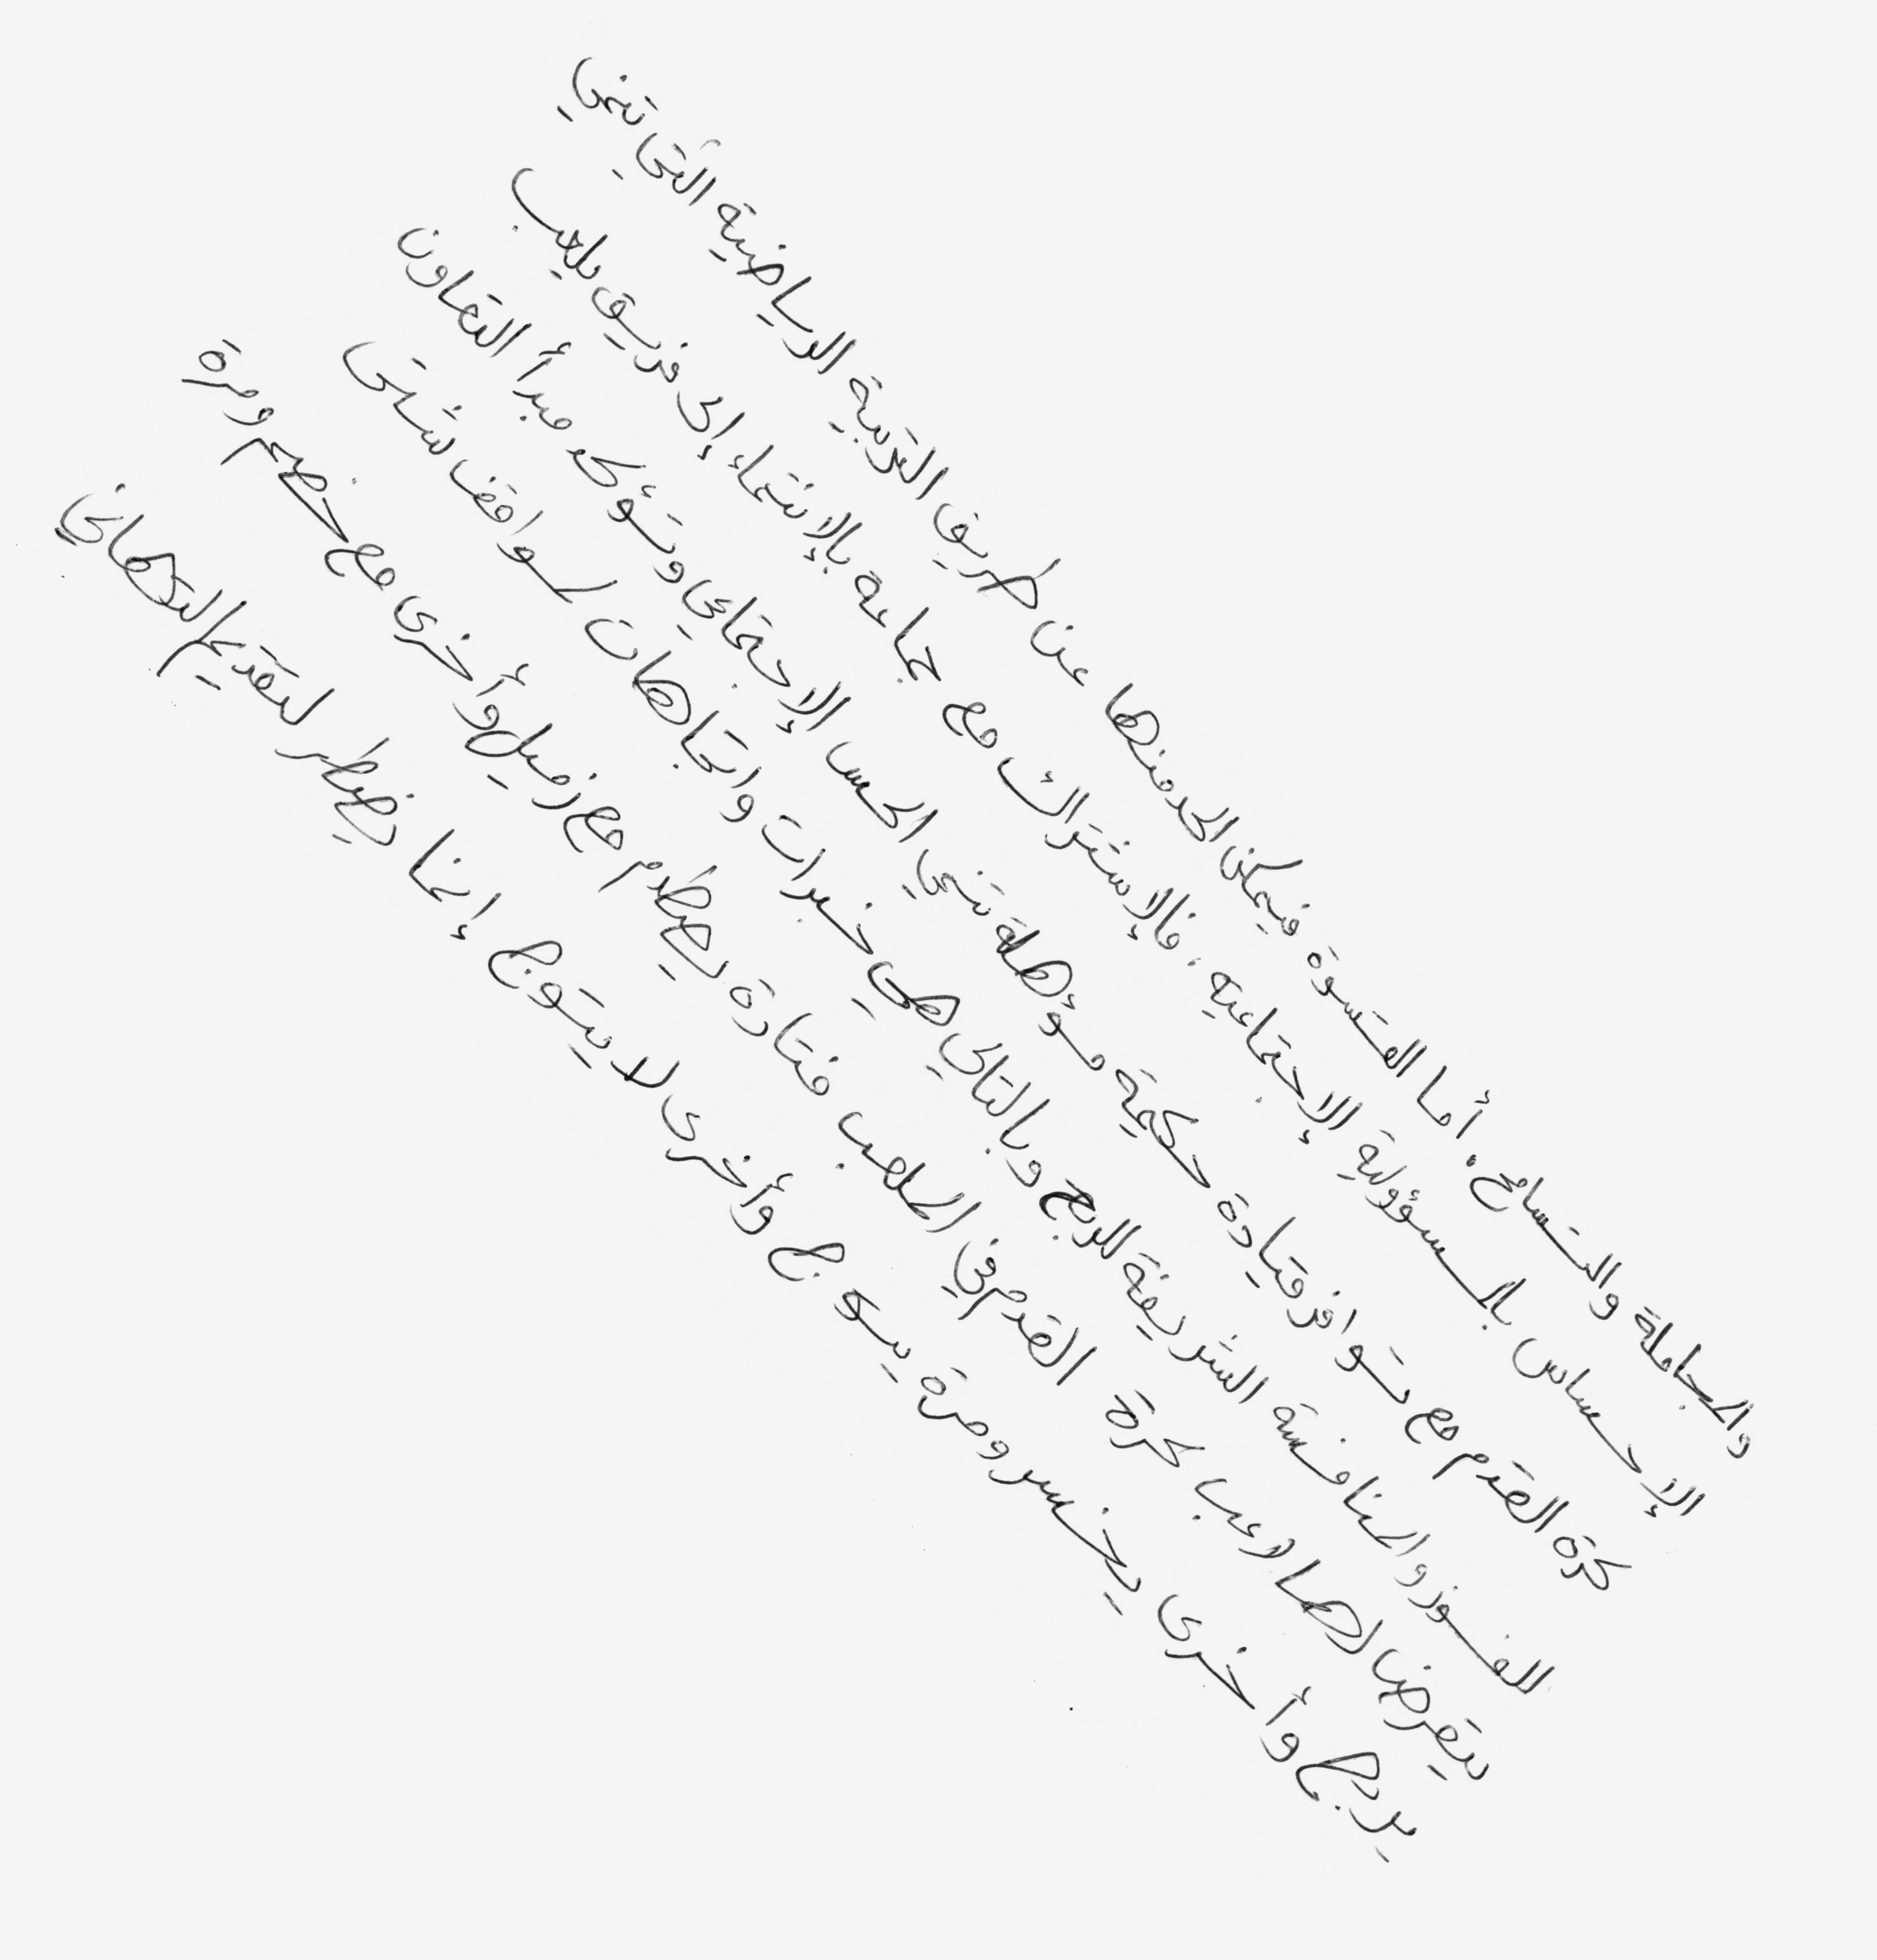 والمجاملة والتسامح. أما القسوة فيمكن الحد منها عن طريق التربية الرياضية التي تنمي
الإحساس بالمسؤولية الإجتماعية، فالإشتراك مع جماعة بالإنتماء إلى فريق يلعب
كرة القدم مع توافر قيادة حكيمة مؤهلة تنمي الحس الإجتماعي وتؤكد مبدأ التعاون
للفوز والمنافسة الشريفة للربح وبالتالي هي خبرات واتجاهات لمواقف شتى
يتعرض لها لاعب كرة القدم في الملعب فتارة يصطدم مع زميل وأخرى مع خصم ومرة
يربح وأخرى يخسر ومرة يتوج وأخرى لا يتوج إنما يضطر لتقديم التهاني